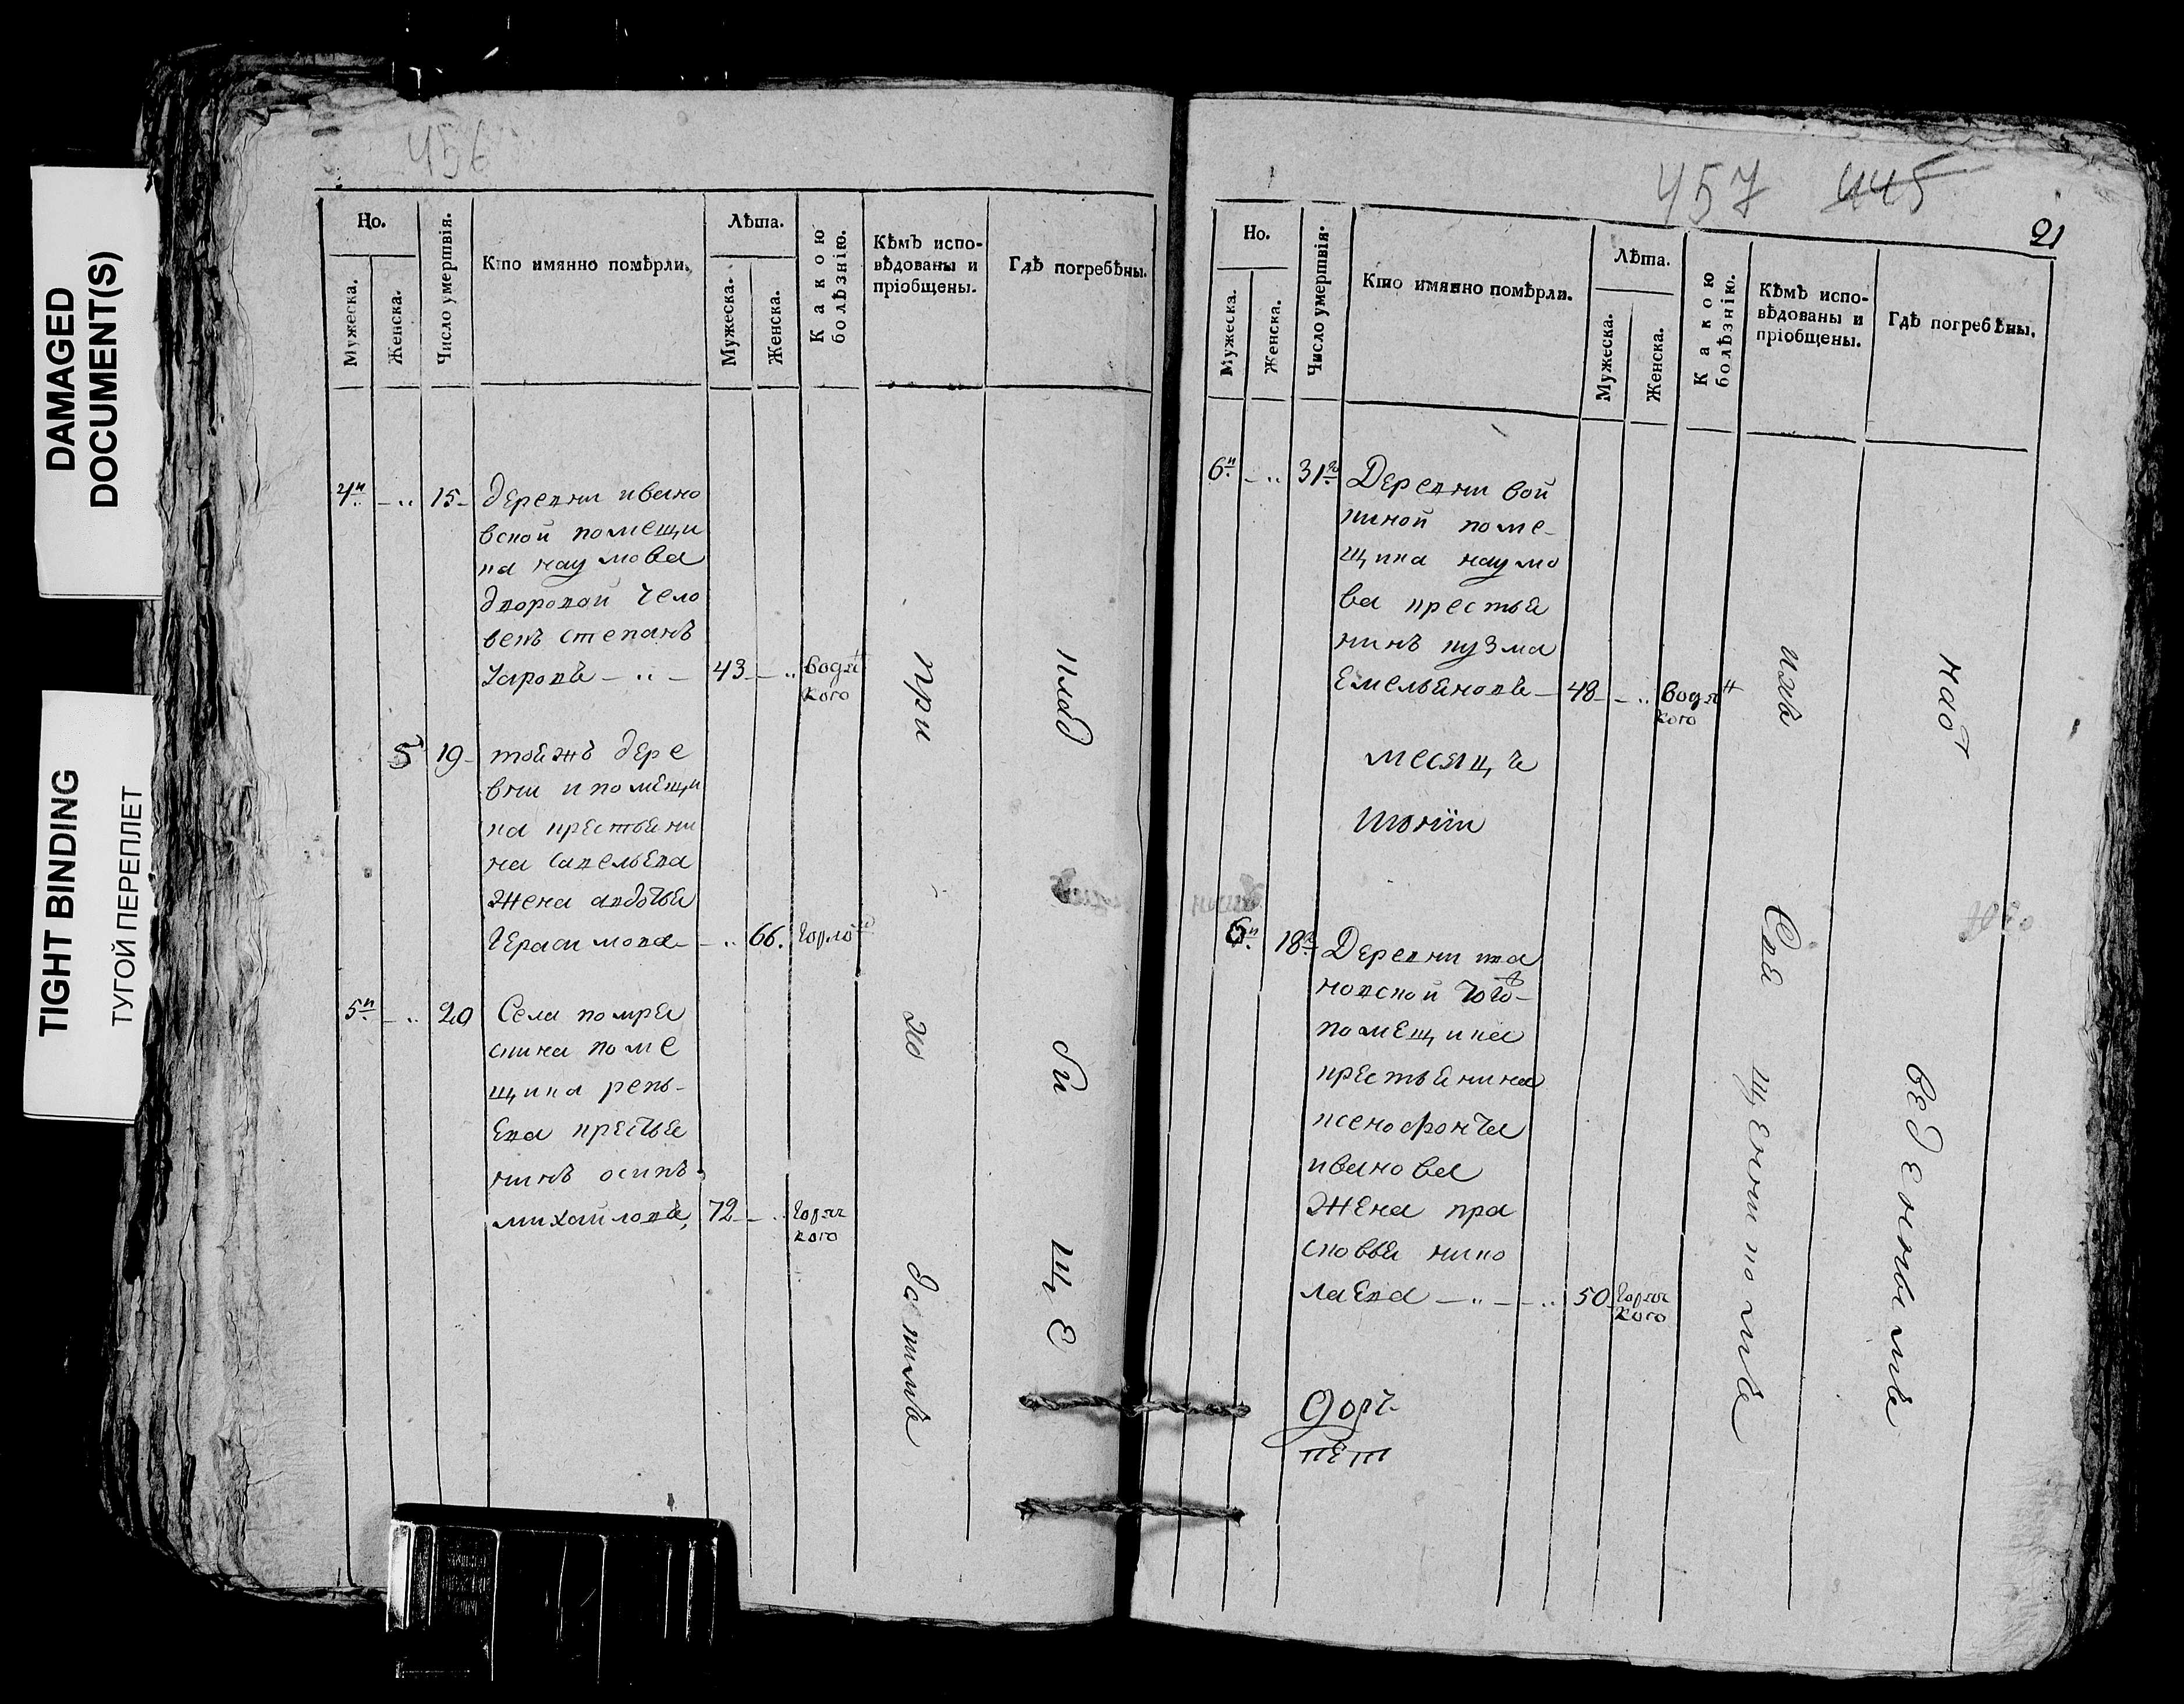 DAMAGED
DOCUMENT(S)
TIGHT BINDING
ТУГОЙ ПЕРЕПЛЕТ
456
Но.
Мужеска.
Женска.
Число умертвія.
Кто имянно помѣрли.
Лѣта.
Мужеска.
Женска.
Какою
болѣзнію.
Кѣмъ испо-
вѣдованы и
пріобщены.
Гдѣ погребѣны.
4й 15 деревни ивано
вской помещи
ка наумова
дворовой чело
векъ степанъ
43 водян
кого
5 19 тояжъ дере
вни и помещи
ка крестьяни
на савельева
жена авдотья
герасимова 66. горло
5й 20 Села
помѣ
щика репь-
ева крестья
нинъ осипъ
михайловъ, 72 горяч
кого
при
хо
дскимъ
клад
би
ще
457 445
21
Но.
Мужеска.
Женска.
Число умертвія.
Кто имянно помѣрли.
Лѣта.
Мужеска.
Женска.
Какою
болѣзнію.
Кѣмъ испо-
вѣдованы и
пріобщены.
Гдѣ погребѣны.
6й 31го Деревни вой
киной поме-
щика наумо
ва крестья
нинъ кузма
Емельяновъ 48 водян
кого
месяцъ
июнїи
6й 18го Деревни ива
новской того-
помещика
крестьянина
ксенофонта
иванова
жена пра
сковья нико
лаева 50 горяч
кого
имъ
Свя
щенникомъ
на
от
веденномъ